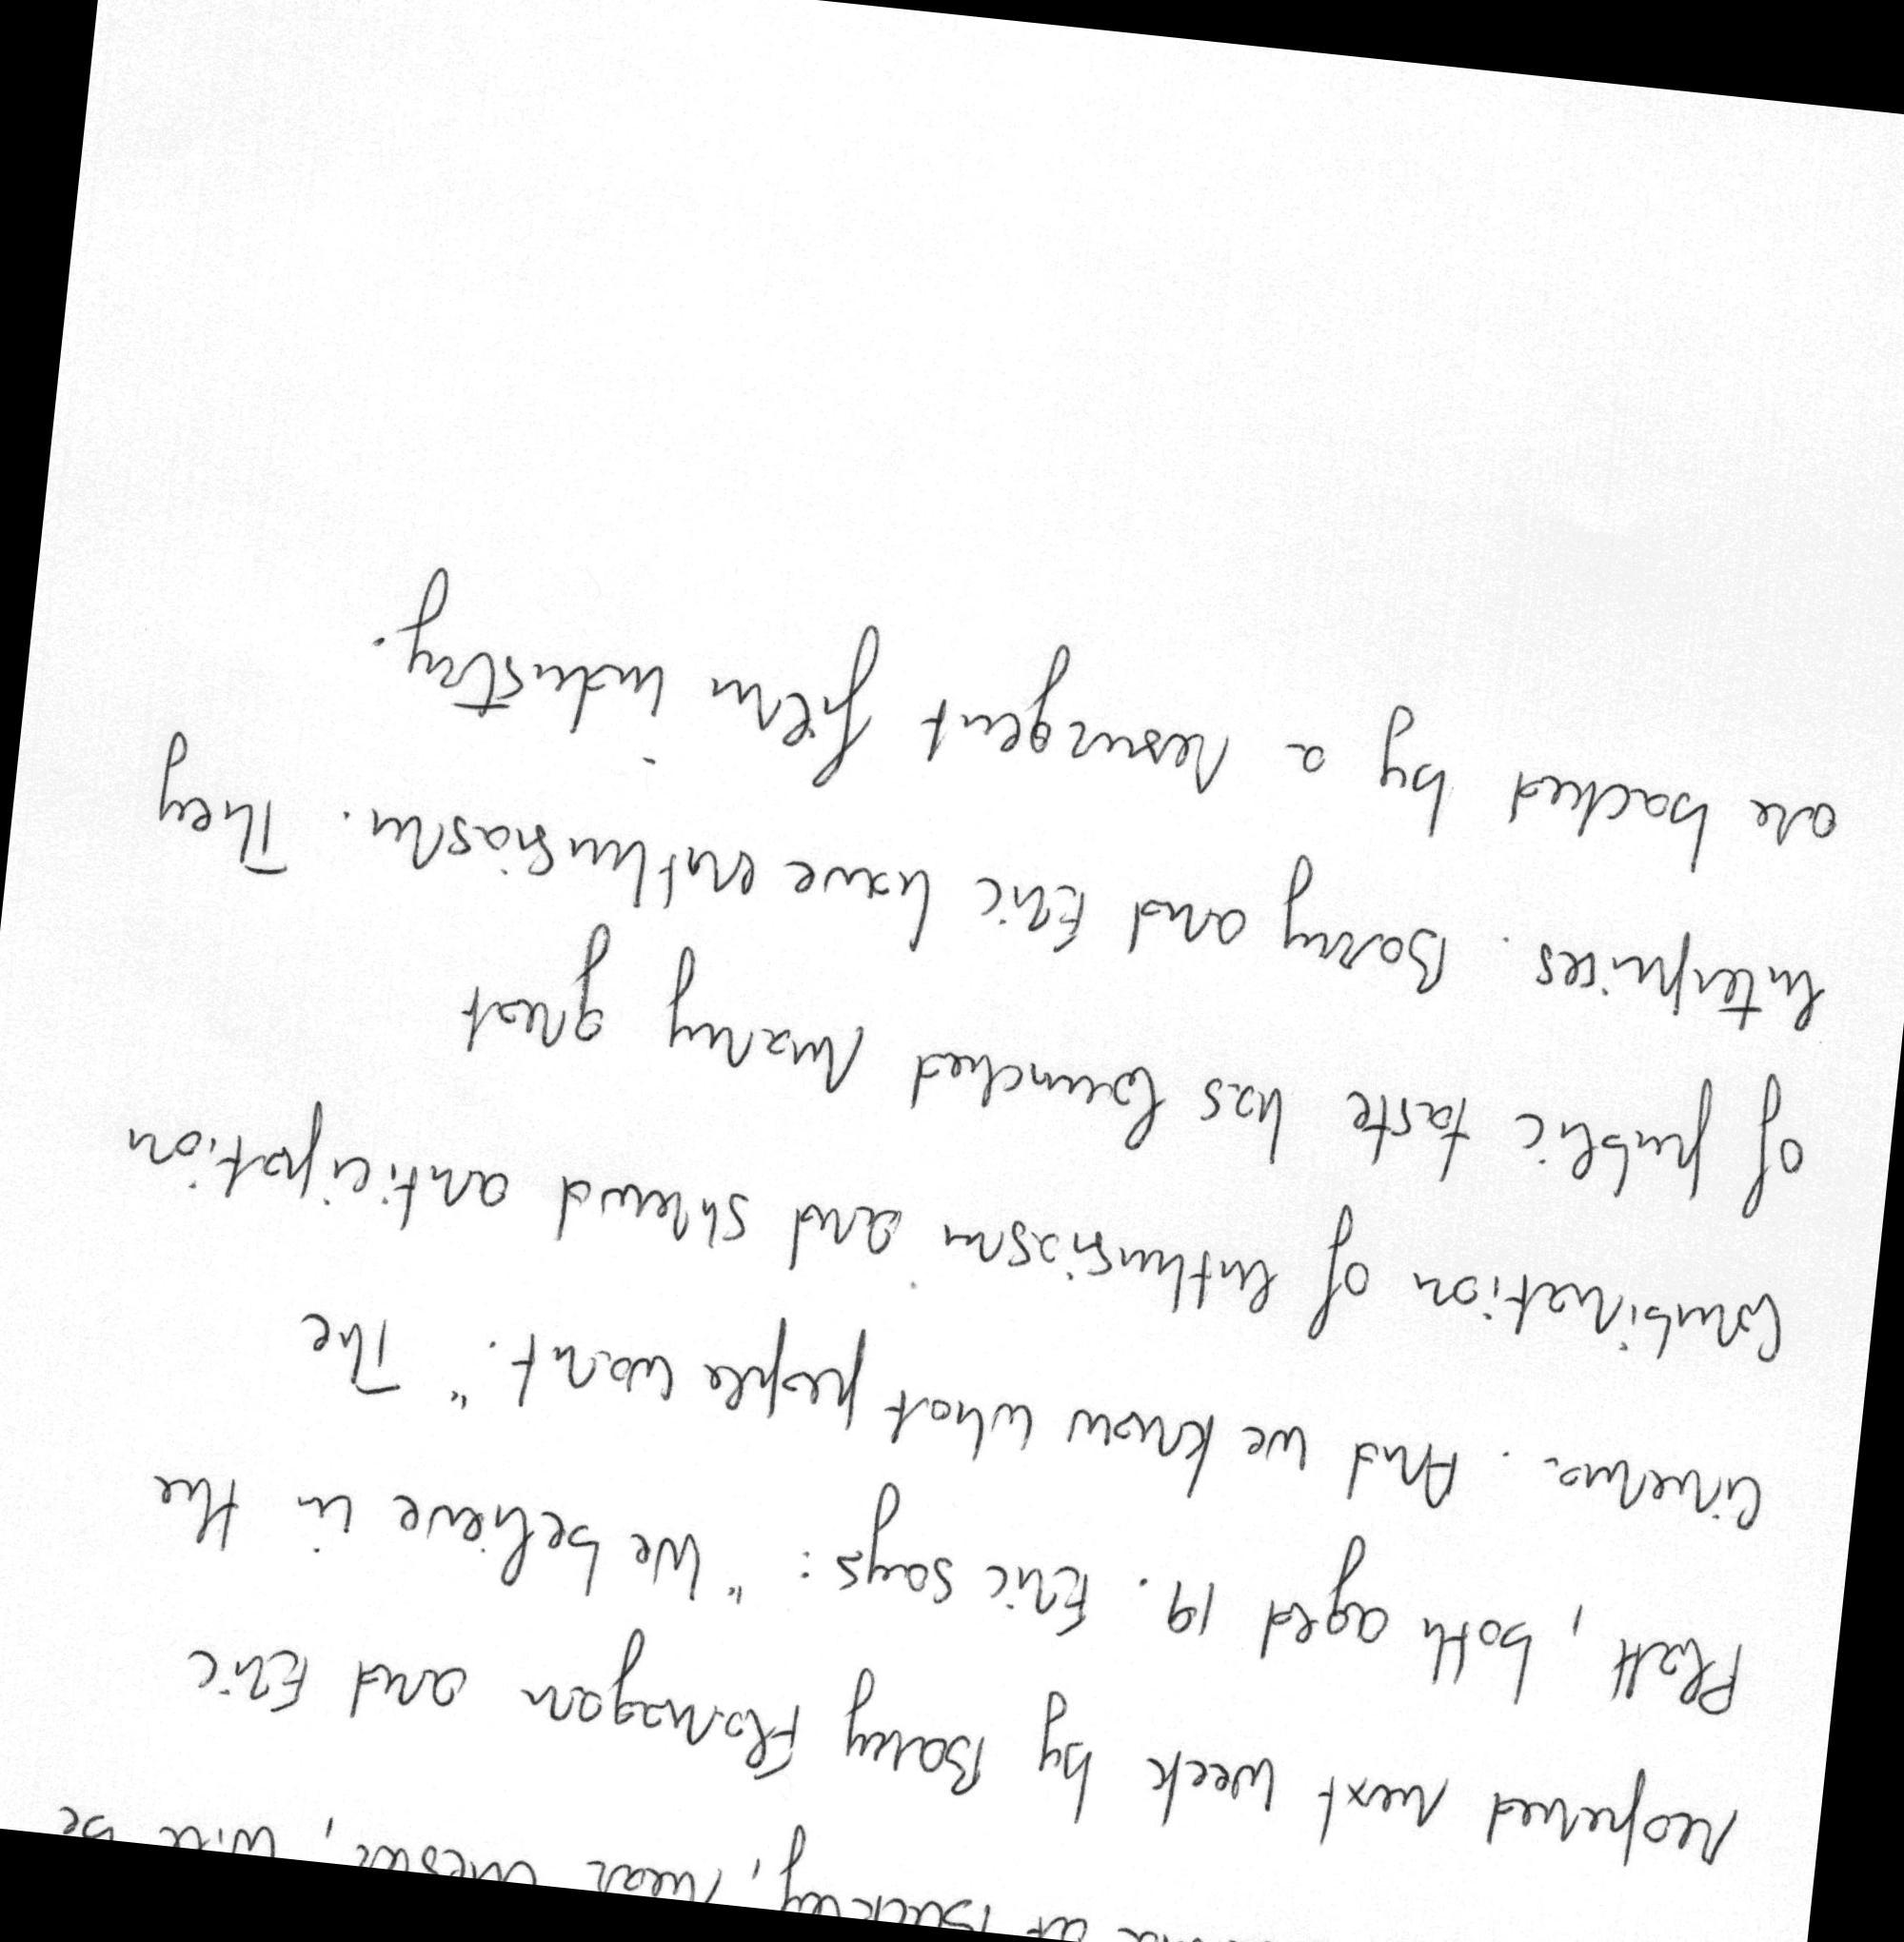 at Buckley, near Chester, will be
reopened next week by Barry Flanagan and Eric
Platt, both aged 19. Eric says: "We believe in the
cinema. And we know what people want." The
combination of enthusiasm and shrewd anticipation
of public taste has launched many great
enterprises. Barry and Eric have enthusiasm. They
are backed by a resurgent film industry.